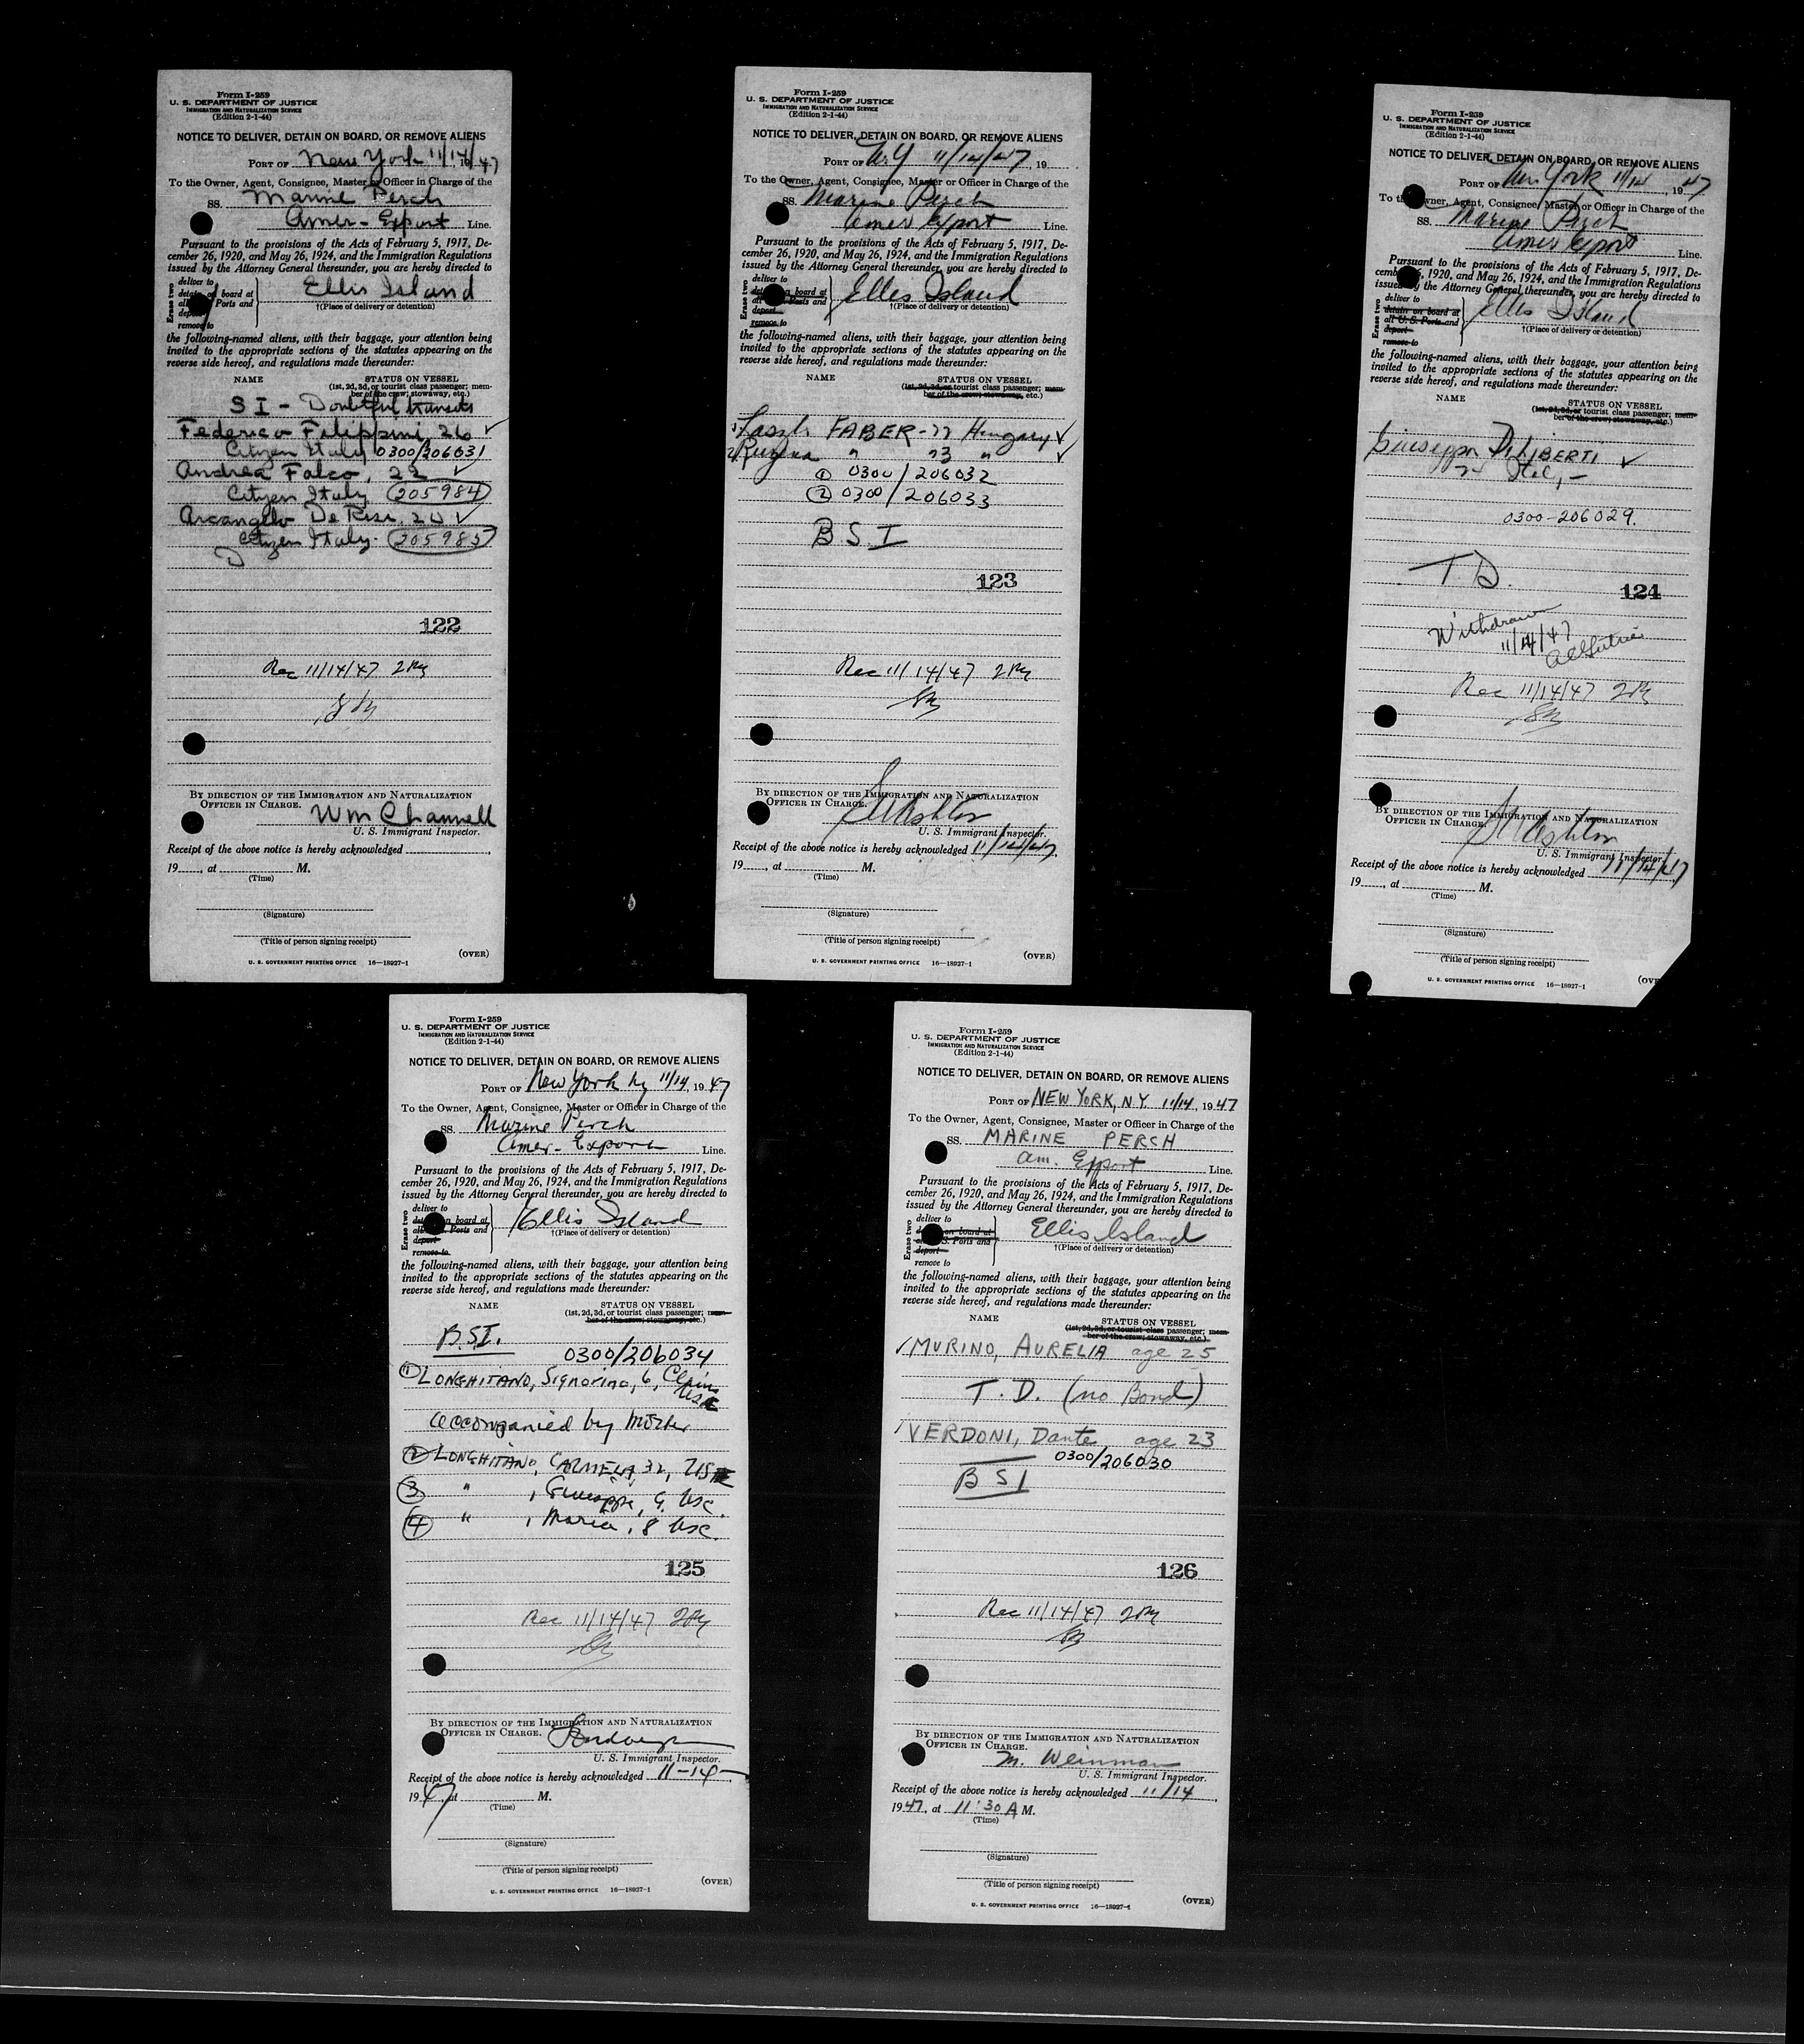 Form I-259
U. S. DEPARTMENT OF JUSTICE
IMMIGRATION AND NATURALIZATION SERVICE
(Edition 2-1-44)
NOTICE TO DELIVER, DETAIN ON BOARD, OR REMOVE ALIENS
PORT OF New York 11/14, 1947
To the Owner, Agent, Consignee, Master or Officer in Charge of the
SS. Marine Perch
Amer-Export Line.
Pursuant to the provisions of the Acts of February 5, 1917, De-
cember 26, 1920, and May 26, 1924, and the Immigration Regulations
issued by the Attorney General thereunder, you are hereby directed to
Erase two
deliver to
detain on board at
all Ports and
deport
remove to
Ellis Island
†(Place of delivery or detention)
the following-named aliens, with their baggage, your attention being
invited to the appropriate sections of the statutes appearing on the
reverse side hereof, and regulations made thereunder:
NAME STATUS ON VESSEL
(1st, 2d, 3d, or tourist class passenger; mem-
ber of the crew; stowaway, etc.)
S I - Doubtful transits
Federico Filippini 26 ✓
Citizen Italy 0300/206031
Andrea Falco, 22 ✓
Citizen Italy 205984
Arcangelo De Rise. 20 ✓
Citizen Italy. 205985
122
Rec 11/14/47 2PM
BY DIRECTION OF THE IMMIGRATION AND NATURALIZATION
OFFICER IN CHARGE.
Wm Channell
U. S. Immigrant Inspector.
Receipt of the above notice is hereby acknowledged
19 , at M.
(Time)
(Signature)
(Title of person signing receipt)
(OVER)
U. S. GOVERNMENT PRINTING OFFICE 16—18927-1
Form I-259
U. S. DEPARTMENT OF JUSTICE
IMMIGRATION AND NATURALIZATION SERVICE
(Edition 2-1-44)
NOTICE TO DELIVER, DETAIN ON BOARD, OR REMOVE ALIENS
PORT OF N.Y 11/14/47, 19
To the Owner, Agent, Consignee, Master or Officer in Charge of the
SS. Marine Perch
Amer Export Line.
Pursuant to the provisions of the Acts of February 5, 1917, De-
cember 26, 1920, and May 26, 1924, and the Immigration Regulations
issued by the Attorney General thereunder, you are hereby directed to
Erase two
deliver to
detain on board at
all Ports and
deport
remove to
Ellis Island
†(Place of delivery or detention)
the following-named aliens, with their baggage, your attention being
invited to the appropriate sections of the statutes appearing on the
reverse side hereof, and regulations made thereunder:
NAME STATUS ON VESSEL
(1st, 2d, 3d, or tourist class passenger; mem-
ber of the crew; stowaway, etc.)
1 Laszlo FABER - Hungary ✓
2 Ruzena " 23 " ✓
① 0300/206032
② 0300/206033
B.S.I
123
Rec 11/14/47 2PM
SM
BY DIRECTION OF THE IMMIGRATION AND NATURALIZATION
OFFICER IN CHARGE.
Ashton
U. S. Immigrant Inspector.
Receipt of the above notice is hereby acknowledged 11/14/47
19 , at M.
(Time)
(Signature)
(Title of person signing receipt)
(OVER)
U. S. GOVERNMENT PRINTING OFFICE 16—18927-1
Form I-259
U. S. DEPARTMENT OF JUSTICE
IMMIGRATION AND NATURALIZATION SERVICE
(Edition 2-1-44)
NOTICE TO DELIVER, DETAIN ON BOARD, OR REMOVE ALIENS
PORT OF New York 11/14, 1947
To the Owner, Agent, Consignee, Master or Officer in Charge of the
SS. Marine Perch
Amer Export Line.
Pursuant to the provisions of the Acts of February 5, 1917, De-
cember 1920, and May 26, 1924, and the Immigration Regulations
issued by the Attorney General thereunder, you are hereby directed to
Erase two
deliver to
detain on board at
all U. S. Ports and
deport
remove to
Ellis Island
†(Place of delivery or detention)
the following-named aliens, with their baggage, your attention being
invited to the appropriate sections of the statutes appearing on the
reverse side hereof, and regulations made thereunder:
NAME STATUS ON VESSEL
(1st, 2d, 3d, or tourist class passenger; mem-
ber of the crew; stowaway, etc.)
Giuseppe DiLIBERTI ✓
Ital,-
0300-206029.
T.D.
124
Withdrawn
11/14/47
Rec 11/14/47 2PM
SM
BY DIRECTION OF THE IMMIGRATION AND NATURALIZATION
OFFICER IN CHARGE.
Ashton
U. S. Immigrant Inspector.
Receipt of the above notice is hereby acknowledged 11/14/47
19 , at M.
(Time)
(Signature)
(Title of person signing receipt)
(OVE
U. S. GOVERNMENT PRINTING OFFICE 16—18927-1
Form I-259
U. S. DEPARTMENT OF JUSTICE
IMMIGRATION AND NATURALIZATION SERVICE
(Edition 2-1-44)
NOTICE TO DELIVER, DETAIN ON BOARD, OR REMOVE ALIENS
PORT OF New York NY 11/14, 1947
To the Owner, Agent, Consignee, Master or Officer in Charge of the
SS. Marine Perch
Amer-Export Line.
Pursuant to the provisions of the Acts of February 5, 1917, De-
cember 26, 1920, and May 26, 1924, and the Immigration Regulations
issued by the Attorney General thereunder, you are hereby directed to
Erase two
deliver to
detain on board at
all Ports and
deport
remove to
Ellis Island
†(Place of delivery or detention)
the following-named aliens, with their baggage, your attention being
invited to the appropriate sections of the statutes appearing on the
reverse side hereof, and regulations made thereunder:
NAME STATUS ON VESSEL
(1st, 2d, 3d, or tourist class passenger; mem-
ber of the crew; stowaway, etc.)
B.S.I.
0300/206034
① LONGHITANO, Signorina, 6, Claims
USC
accompanied by mother
② LONGHITANO, CARMELA, 32, USC
③ " , Giuseppe, 9. USC.
④ " , Maria, 8 USC.
125
Rec 11/14/47 2PM
BY DIRECTION OF THE IMMIGRATION AND NATURALIZATION
OFFICER IN CHARGE.
U. S. Immigrant Inspector.
Receipt of the above notice is hereby acknowledged 11-14-
1947, at M.
(Time)
(Signature)
(Title of person signing receipt)
(OVER)
U. S. GOVERNMENT PRINTING OFFICE 16—18927-1
Form I-259
U. S. DEPARTMENT OF JUSTICE
IMMIGRATION AND NATURALIZATION SERVICE
(Edition 2-1-44)
NOTICE TO DELIVER, DETAIN ON BOARD, OR REMOVE ALIENS
PORT OF NEW YORK, N.Y. 11/14, 1947
To the Owner, Agent, Consignee, Master or Officer in Charge of the
SS. MARINE PERCH
Am. Export Line.
Pursuant to the provisions of the Acts of February 5, 1917, De-
cember 26, 1920, and May 26, 1924, and the Immigration Regulations
issued by the Attorney General thereunder, you are hereby directed to
Erase two
deliver to
on board at
S. Ports and
deport
remove to
Ellis Island
†(Place of delivery or detention)
the following-named aliens, with their baggage, your attention being
invited to the appropriate sections of the statutes appearing on the
reverse side hereof, and regulations made thereunder:
NAME STATUS ON VESSEL
(1st, 2d, 3d, or tourist class passenger; mem-
ber of the crew; stowaway, etc.)
✓ MURINO, AURELIA age 25
T.D. (no Bond)
✓ VERDONI, Dante age 23
0300/206030
B S I
126
Rec 11/14/47 2PM
SM
BY DIRECTION OF THE IMMIGRATION AND NATURALIZATION
OFFICER IN CHARGE.
M. Weinman
U. S. Immigrant Inspector.
Receipt of the above notice is hereby acknowledged 11/14
1947, at 11:30 A M.
(Time)
(Signature)
(Title of person signing receipt)
(OVER)
U. S. GOVERNMENT PRINTING OFFICE 16—18927-1